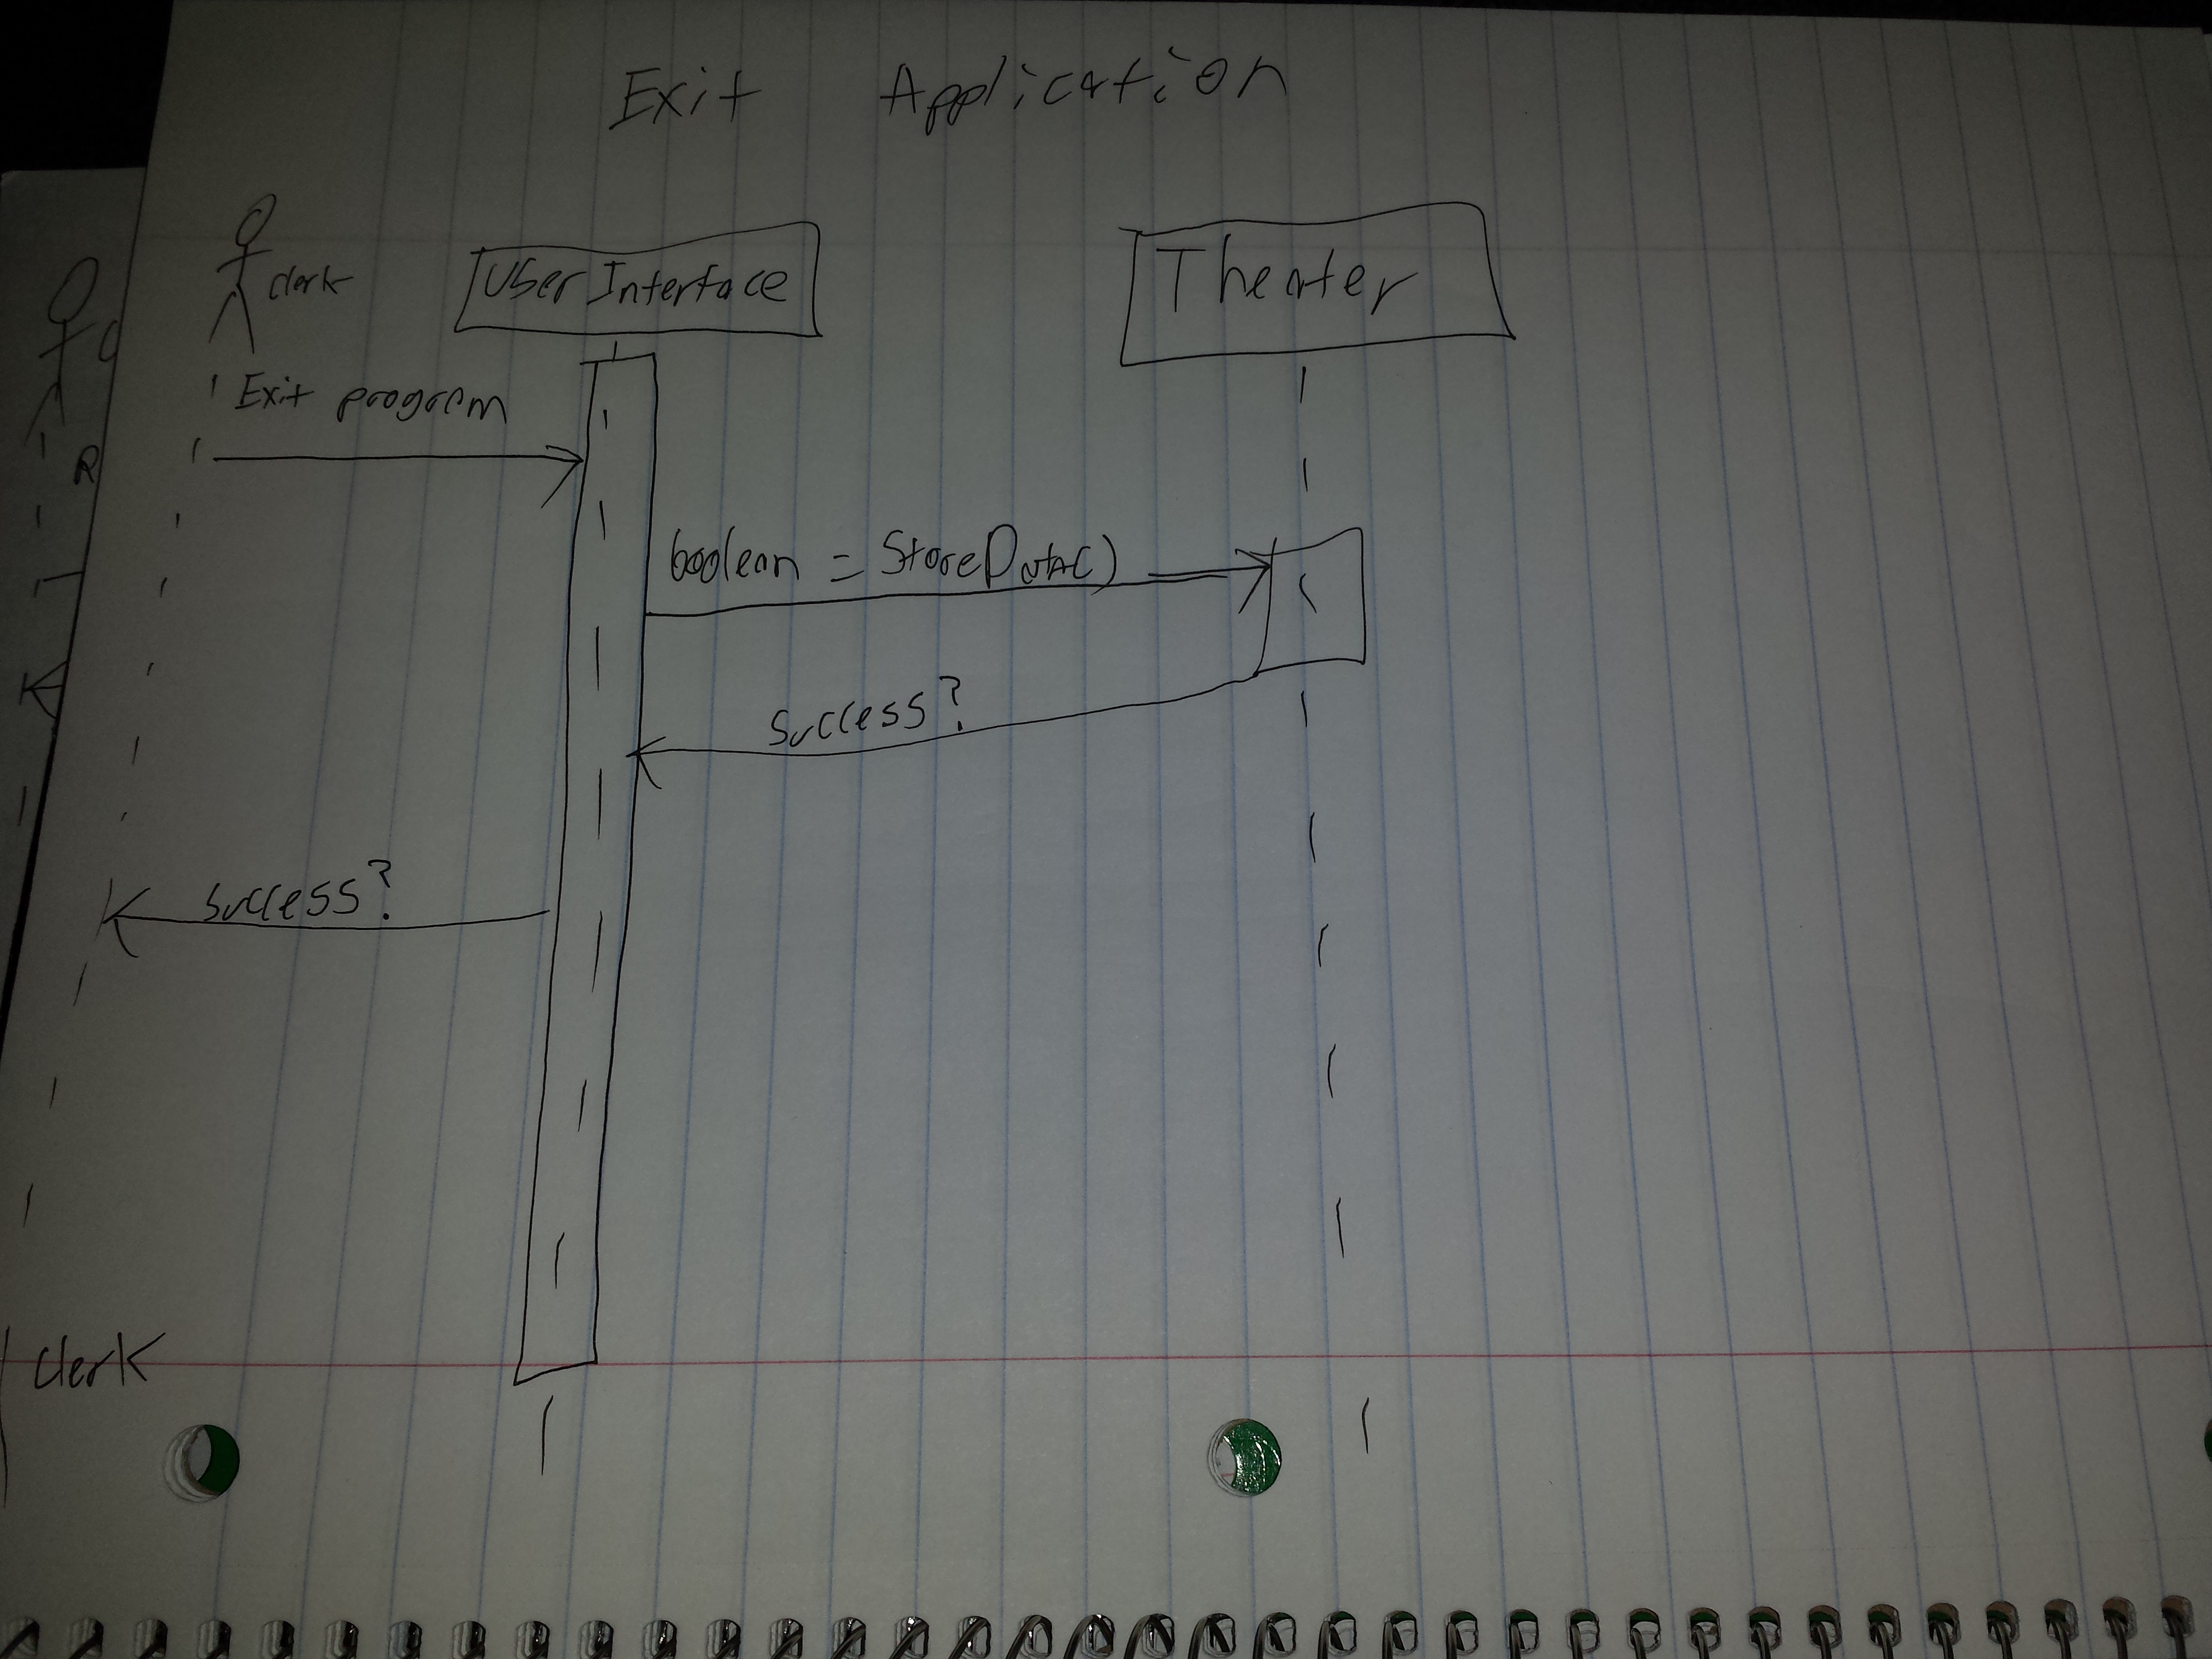 Exit Application
clerk
User Interface
Theater
Exit program
boolean = StoreData()
Success?
Success?
Clerk
R